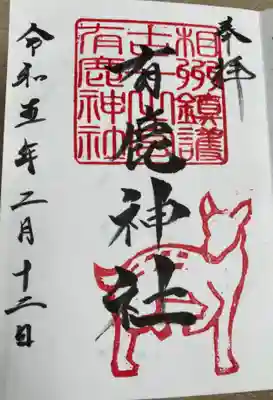 奉拝
相州鎮護
古山宮
有鹿神社
有鹿神社
令和五年二月十二日